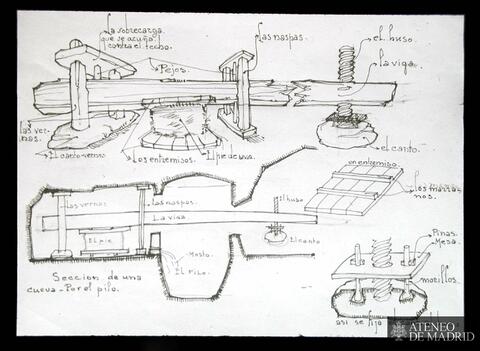 La sobrecarga
que se acuña
contra el techo.
Las naspas.
el huso
Pejos.
la viga
las ver-
nas.
El canto-verno
Los entremisos.
El pie de uva.
el canto
un entremiso.
Las vernas
las naspas.
La viga
El huso
El pie
El canto
Mosto.
El Pilo.
Sección de una
cueva - Por el pilo.
Pinas.
Mesa.
morillos.
así se fija
ATENEO
DE MADRID